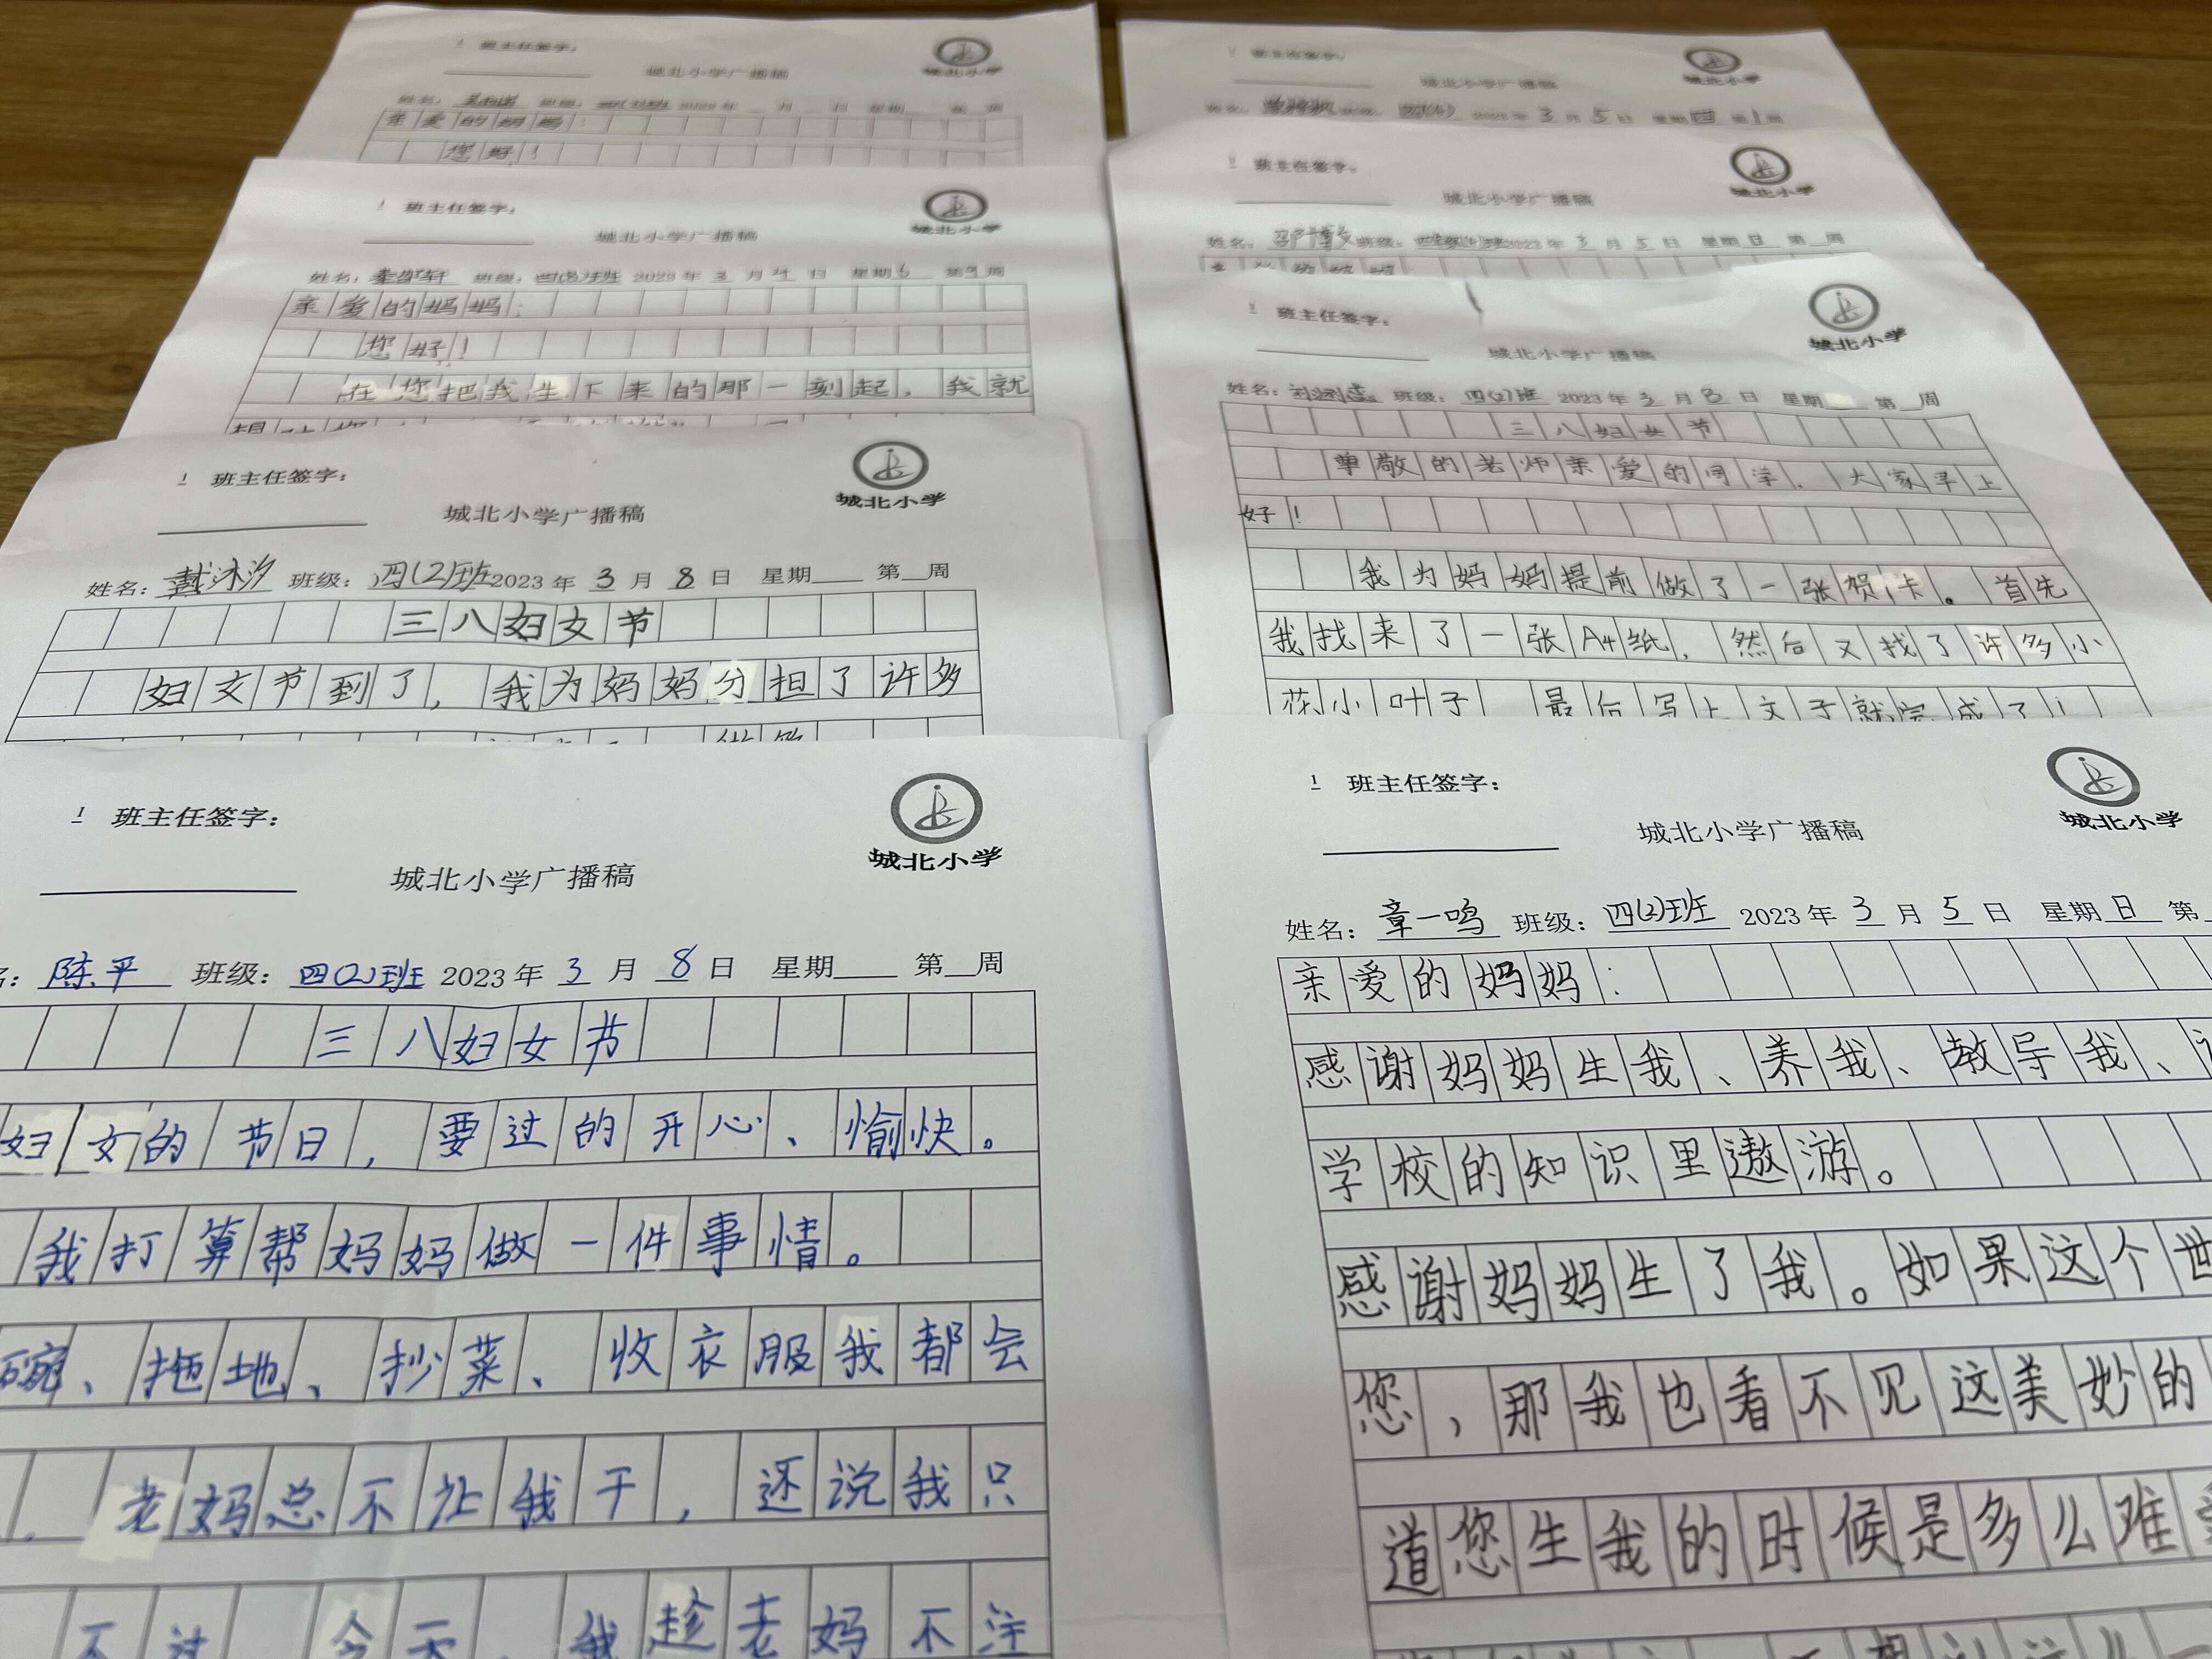 班主任签字：
城北小学
城北小学广播稿
亲爱的妈妈：
您好！
班主任签字：
城北小学
城北小学广播稿
班级：四(2)班 2023年3月4日 星期6
亲爱的妈妈：
您好！
在您把我生下来的那一刻起，我就
1 班主任签字：
城北小学
城北小学广播稿
姓名：戴沐汐 班级：四(2)班 2023年3月8日 星期 第 周
三八妇女节
妇女节到了，我为妈妈分担了许多
1 班主任签字：
城北小学
城北小学广播稿
陈平 班级：四(2)班 2023年3月8日 星期 第 周
三八妇女节
妇女的节日，要过的开心、愉快。
我打算帮妈妈做一件事情。
碗、拖地、抄菜、收衣服我都会
老妈总不让我干，还说我只
不过 今天，我趁老妈不注
城北小学
城北小学广播稿
2023年3月5日 星期四 第1周
班主任签字：
城北小学
城北小学广播稿
姓名： 博文 班级： 2023年3月5日 星期日 第 周
1 班主任签字：
城北小学
城北小学广播稿
姓名： 班级：四(2)班 2023年3月8日 星期 第 周
三八妇女节
尊敬的老师亲爱的同学，大家早上
好！
我为妈妈提前做了一张贺卡。首先
我找来了一张A4纸，然后又找了许多小
花小叶子 最后写上文字就完成了！
1 班主任签字：
城北小学
城北小学广播稿
姓名：章一鸣 班级：四(2)班 2023年3月5日 星期日 第
亲爱的妈妈：
感谢妈妈生我、养我、教导我、
学校的知识里遨游。
感谢妈妈生了我。如果这个世
您，那我也看不见这美妙的
道您生我的时候是多么难